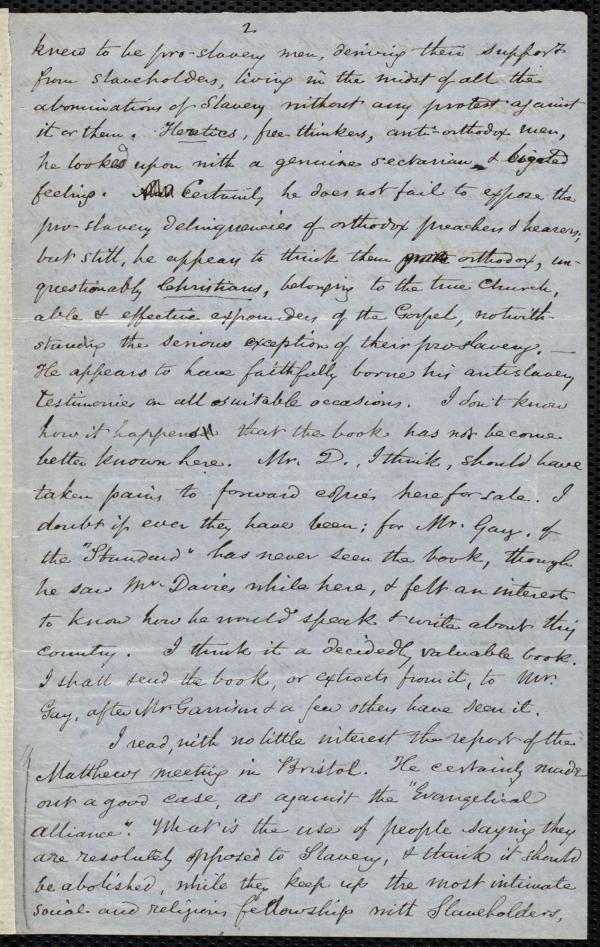 2
knew to be pro-slavery men, deriving their support
from slaveholders, living in the midst of all the
abominations of Slavery without any protest against
it or them. Heretics, free thinkers, anti-orthodox men,
he looked upon with a genuine sectarian & bigoted
feeling. Certainly he does not fail to expose the
pro-slavery delinquencies of orthodox preachers & hearers,
but still, he appears to think them orthodox, un-
questionably Christians, belonging to the true Church,
able & effective expounders of the Gospel, notwith-
standing the serious exception of their proslavery. —
He appears to have faithfully borne his antislavery
testimonies on all suitable occasions. I don't know
how it happens that the book has not become
better known here. Mr. D., I think, should have
taken pains to forward copies here for sale. I
doubt if ever they have been; for Mr. Gay, of
the "Standard" has never seen the book, though
he saw Mr. Davies while here, & felt an interest
to know how he would speak & write about this
country. I think it a decidedly valuable book.
I shall send the book, or extracts from it, to Mr.
Gay, after Mr Garrison & a few others have seen it.
I read, with no little interest the report of the
Matthews meeting in Bristol. He certainly made
out a good case, as against the "Evangelical
alliance". What is the use of people saying they
are resolutely opposed to Slavery, & think it should
be abolished, while they keep up the most intimate
social and religious fellowship with Slaveholders,